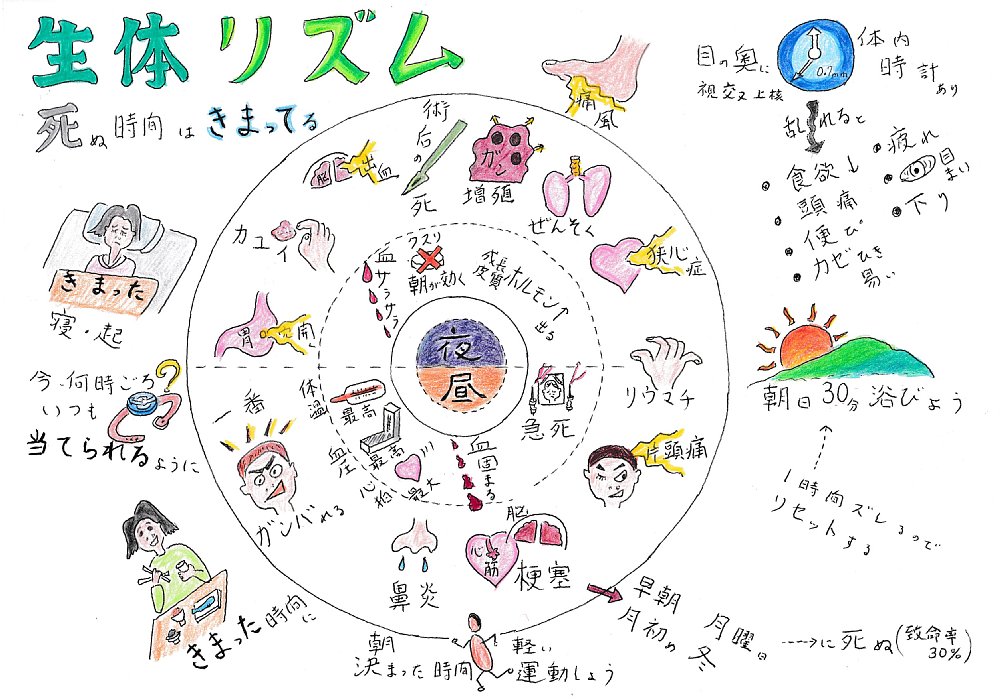 生体リズム
死ぬ時間はきまってる
目の奥に
視交叉上核
0.7mm
体内
時計
あり
乱れると
食欲↓
頭痛
便ぴ
カゼひき
易い
疲れ
目
まい
下り
きまった
寝・起
今、何時ごろ?
いつも
当てられるように
きまった時間に
朝日30分浴びよう
1時間ズレるので
リセットする
痛風
術后の死
ガン
増殖
ぜんそく
狭心症
リウマチ
片頭痛
脳
心筋
梗塞
鼻炎
一番
ガンバれる
胃
カユイ
脳
出血
血サラサラ
クスリ
朝が効く
成長
皮質
ホルモン↑
出る
夜
昼
急死
体温
最高
血圧
最高
心拍
最大
血固まる
早朝
月初め
月曜日
冬
に死ぬ(致命率
30%)
朝
決まった時間
軽い
運動しよう